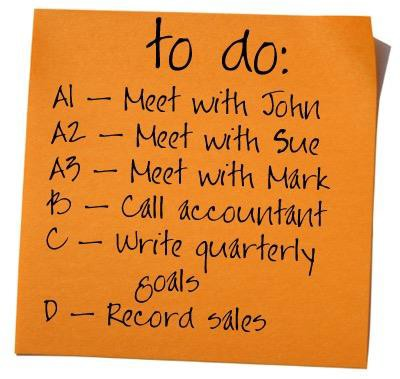 to do:
A1 – Meet with John
A2 – Meet with Sue
A3 – Meet with Mark
B – Call accountant
C – Write quarterly
goals
D – Record sales